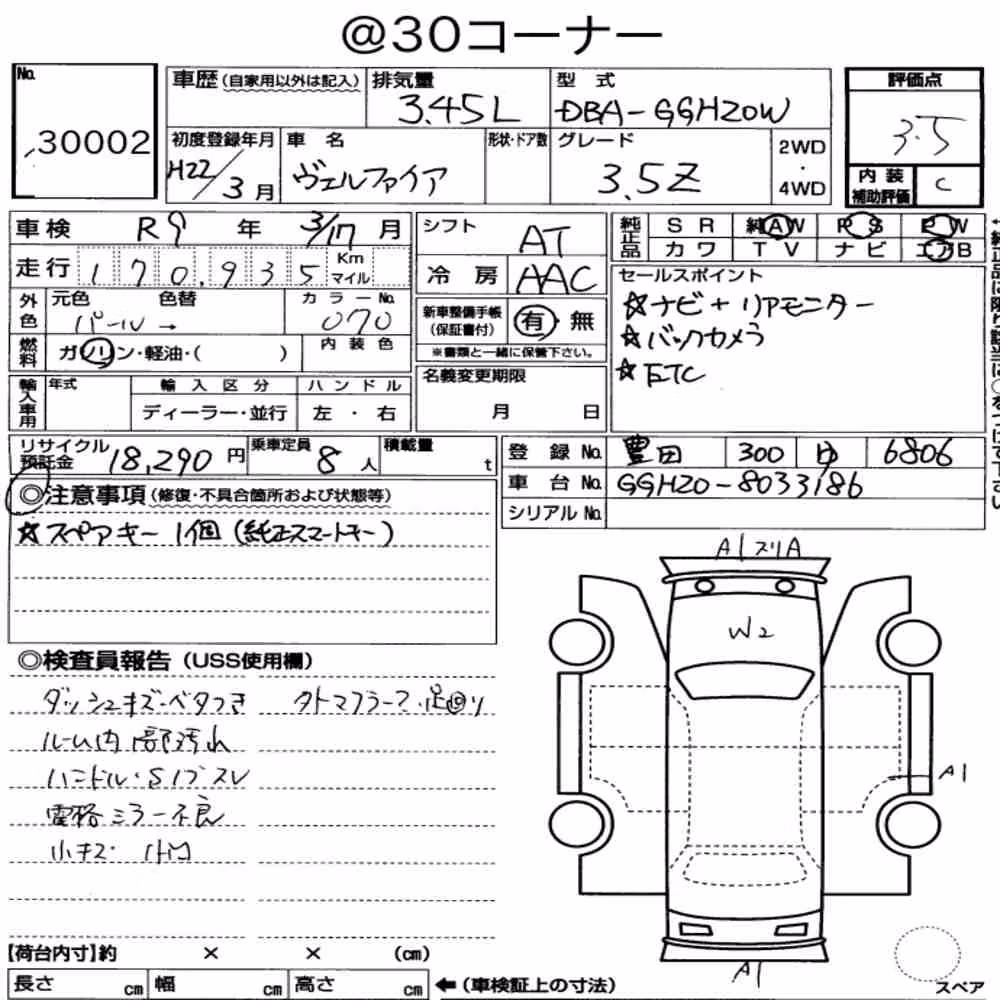 @30コーナー
No.
30002
車歴(自家用以外は記入)
排気量
3.45L
型式
DBA-GGH20W
評価点
3.5
初度登録年月
H22/3月
車名
ヴェルファイア
形状・ドア数
グレード
3.5Z
2WD
・
4WD
内装
補助評価
C
車検
R9年3/17月
走行
170,935
Km
マイル
外色
元色
色替
パール→
カラーNo.
070
燃料
ガソリン・軽油・( )
内装色
輸入車用
年式
輸入区分
ディーラー・並行
ハンドル
左・右
シフト
AT
冷房
AAC
新車整備手帳
(保証書付)
有・無
※書類と一緒に保管下さい。
名義変更期限
月 日
純正品
SR
純AW
PS
PW
カワ
TV
ナビ
エアB
セールスポイント
☆ナビ+リアモニター
☆バックカメラ
☆ETC
リサイクル
預託金
18,290円
乗車定員
8人
積載量
t
登録No.
豊田 300 ゆ 6806
車台No.
GGH20-8033186
シリアルNo.
◎注意事項(修復・不具合箇所および状態等)
☆スペアキー1個(純正スマートキー)
◎検査員報告(USS使用欄)
ダッシュキズ・ベタつき
ルーム内 部汚れ
ハンドル・Sノブスレ
電格ミラー不良
小キズ・凹
A1スリA
W2
A1
A1
【荷台内寸】約 × × (cm)
長さ cm
幅 cm
高さ cm
←(車検証上の寸法)
スペア